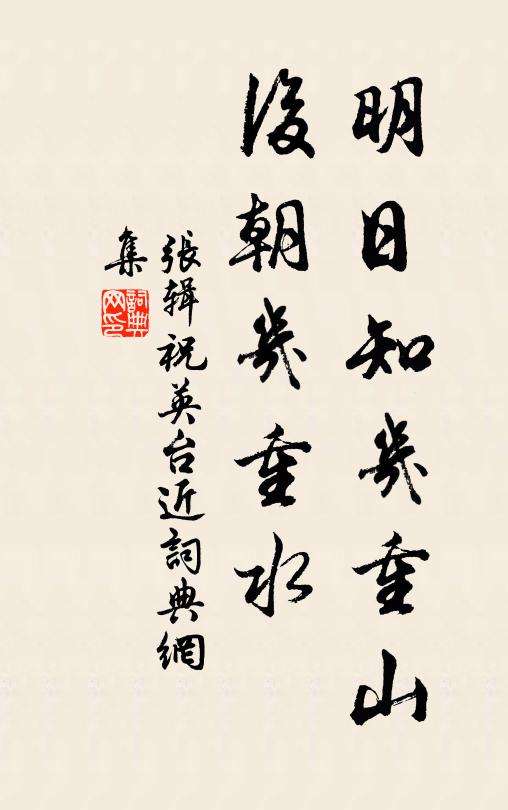 明日知幾重山
後朝幾重水
張輯祝英台近詞典網
集
詞典
网印